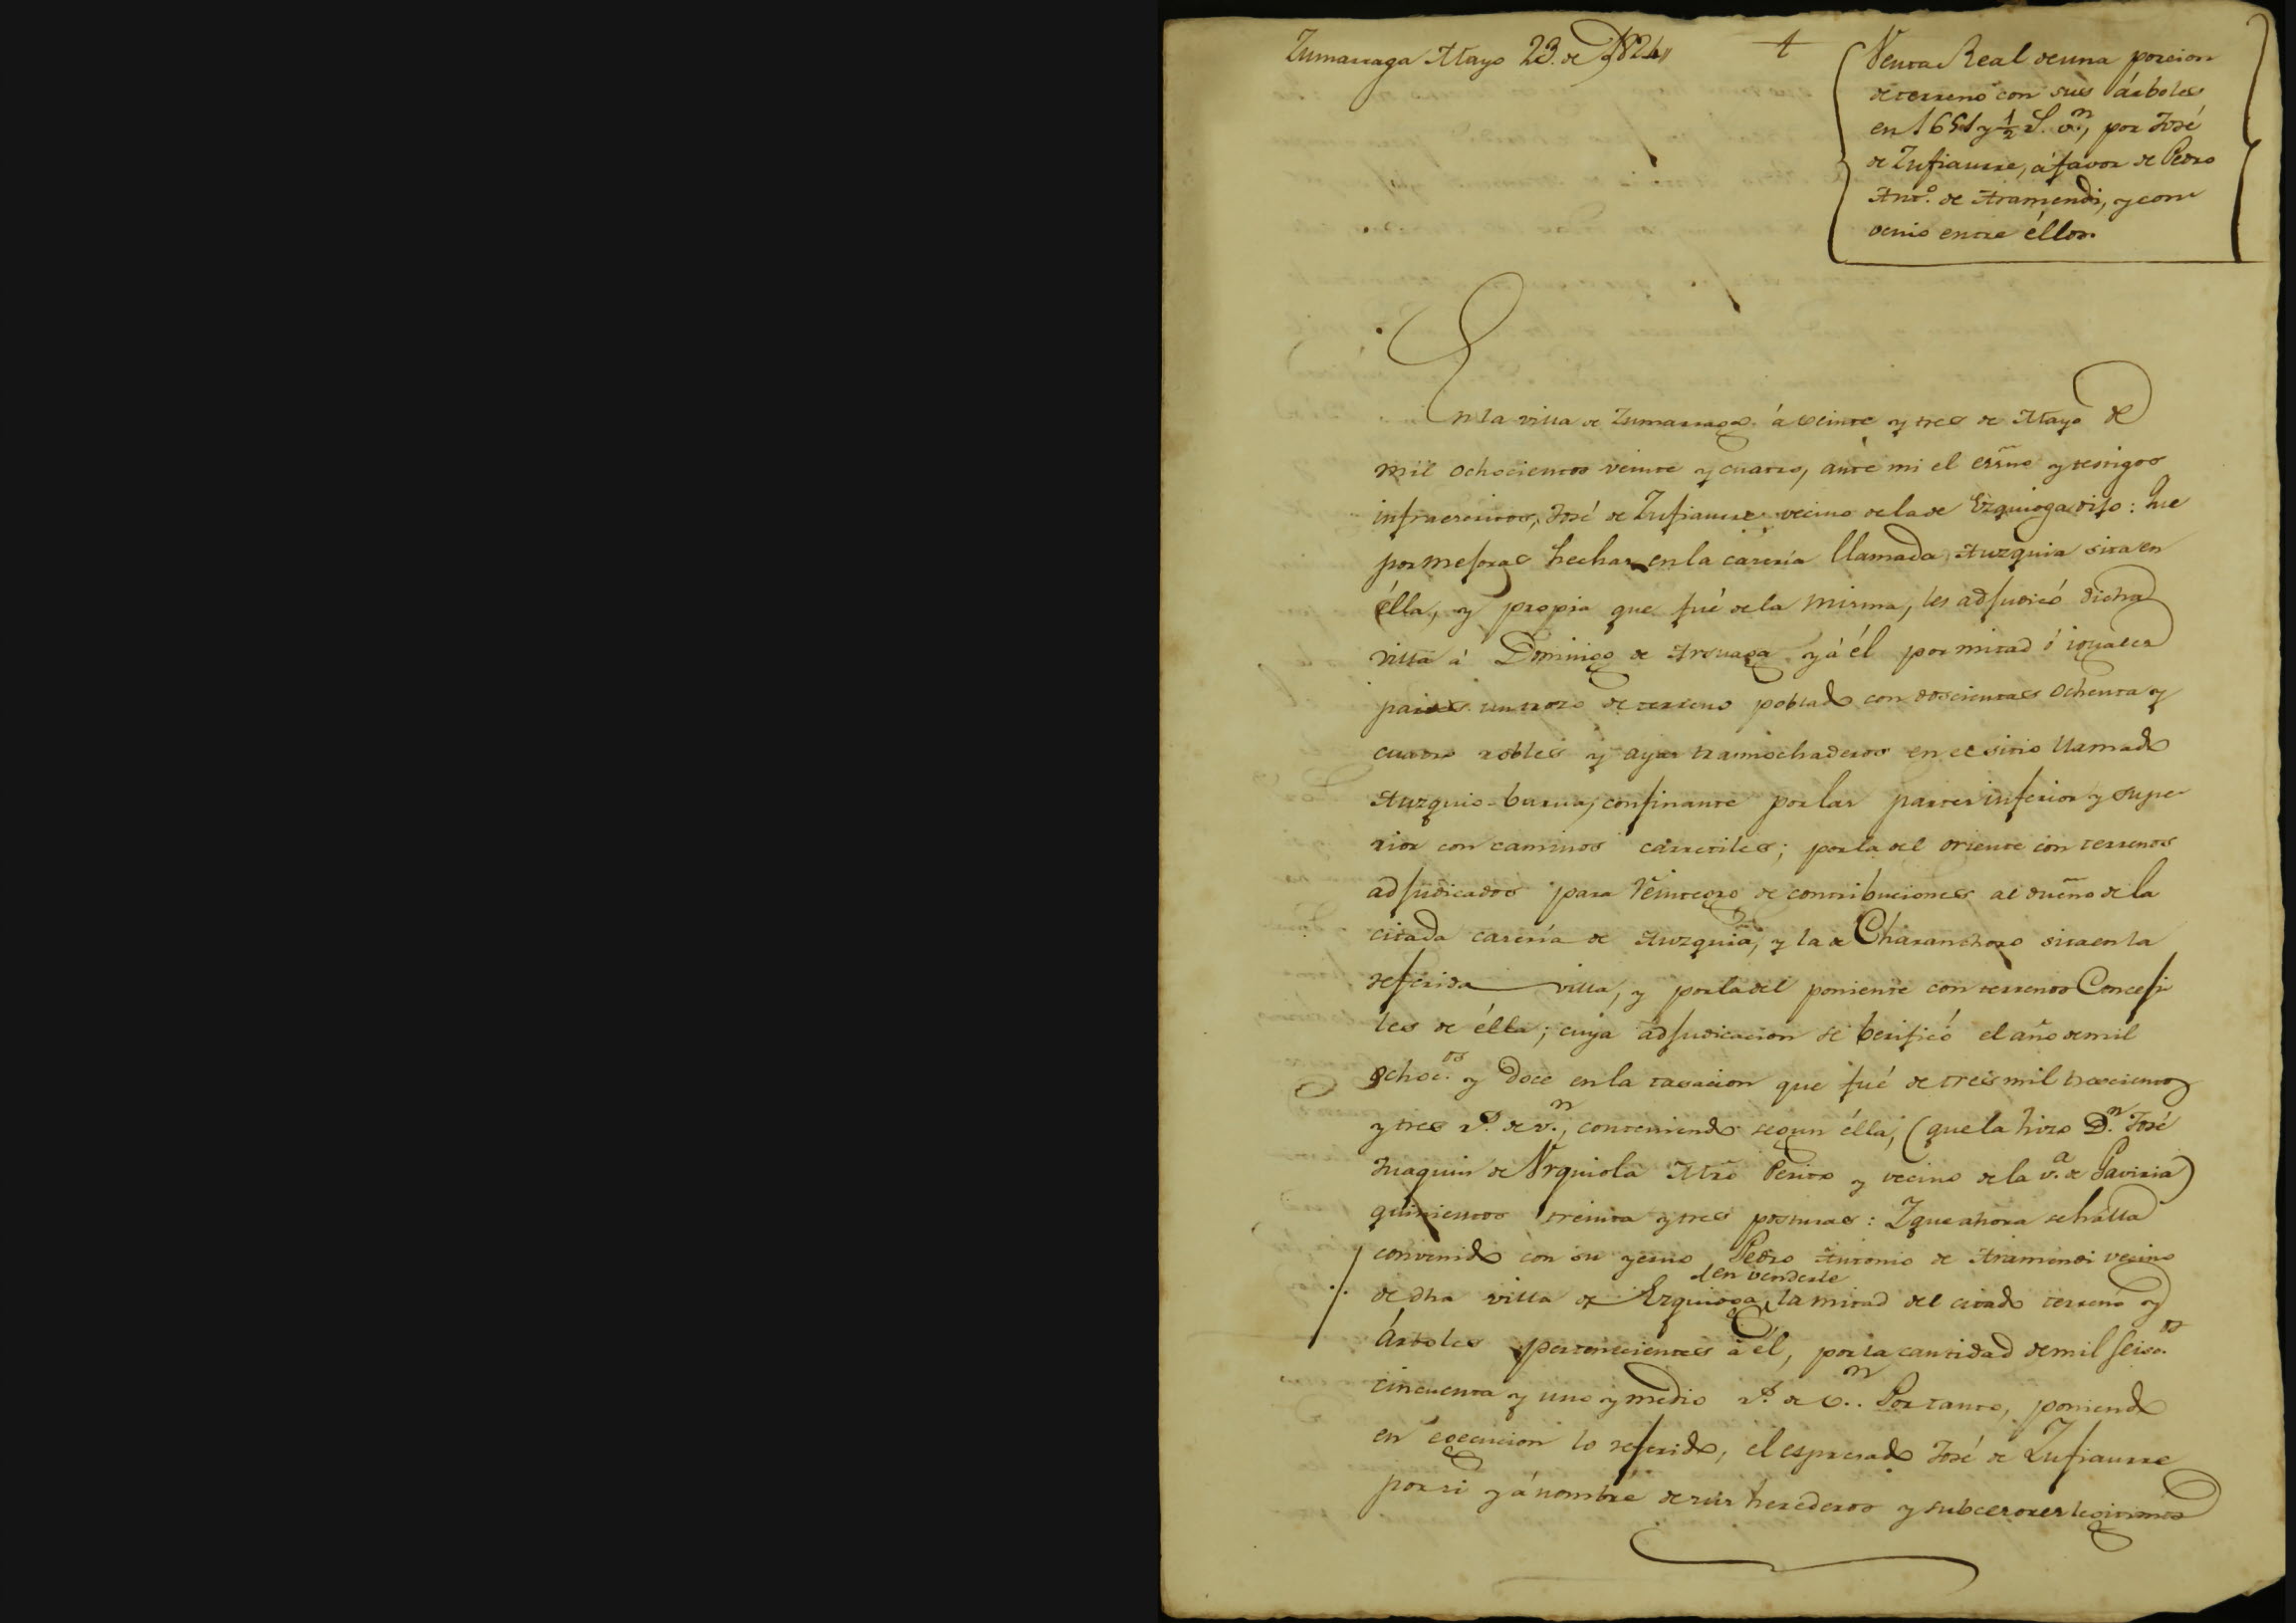 Zumarraga Mayo 23. de 1824
Venta Real de una porcion
de terreno con sus árboles
en 1651 y ½ rs. vn., por José
de Zufiaurre, á favor de Pedro
Anto. de Aramendi, y con
venio entre éllos.
En la villa de Zumarraga á veinte y tres de Mayo de
mil ochocientos veinte y cuatro, ante mi el essno y testigos
infraescritos, José de Zufiaurre vecino de la de Ezquioga dijo: Que
por mejoras hechas en la caseria llamada Auzquia sita en
élla, y propia que fué de la misma, les adjudicó dicha
villa á Domingo de Arsuaga y á él por mitad ó iguales
partes un trozo de terreno poblado con doscientas ochenta y
cuatro robles y ayas trasmochaderos en el sitio llamado
Auzquio-burua, confinante por las partes inferior y supe
rior con caminos carretiles; por la del oriente con terrenos
adjudicados para Reintegro de contribuciones al dueño de la
citada caseria de Auzquia, y la de Charanchoro sita en la
referida villa, y por la del poniente con terrenos Conceji
les de élla; cuya adjudicacion se berificó el año de mil
ochoc.os y doce en la tasacion que fué de tres mil trescientos
y tres rs. de vn., conteniendo segun élla, (que la hizo Dn. José
Juaquin de Vrquiola Mro Perito y vecino de la va. de Gaviria)
quinientos treinta y tres posturas: Y que ahora se halla
convenido con su yerno Pedro Antonio de Aramendi vecino
en venderle
de dha villa de Ezquioga, la mitad del citado terreno y
Árboles pertenecientes á él, por la cantidad de mil seisc.os
cincuenta y uno y medio rs. de vn. Por tanto, poniendo
en egecucion lo referido, el espresado José de Zufiaurre
por si y á nombre de sus herederos y subcesores legitimos